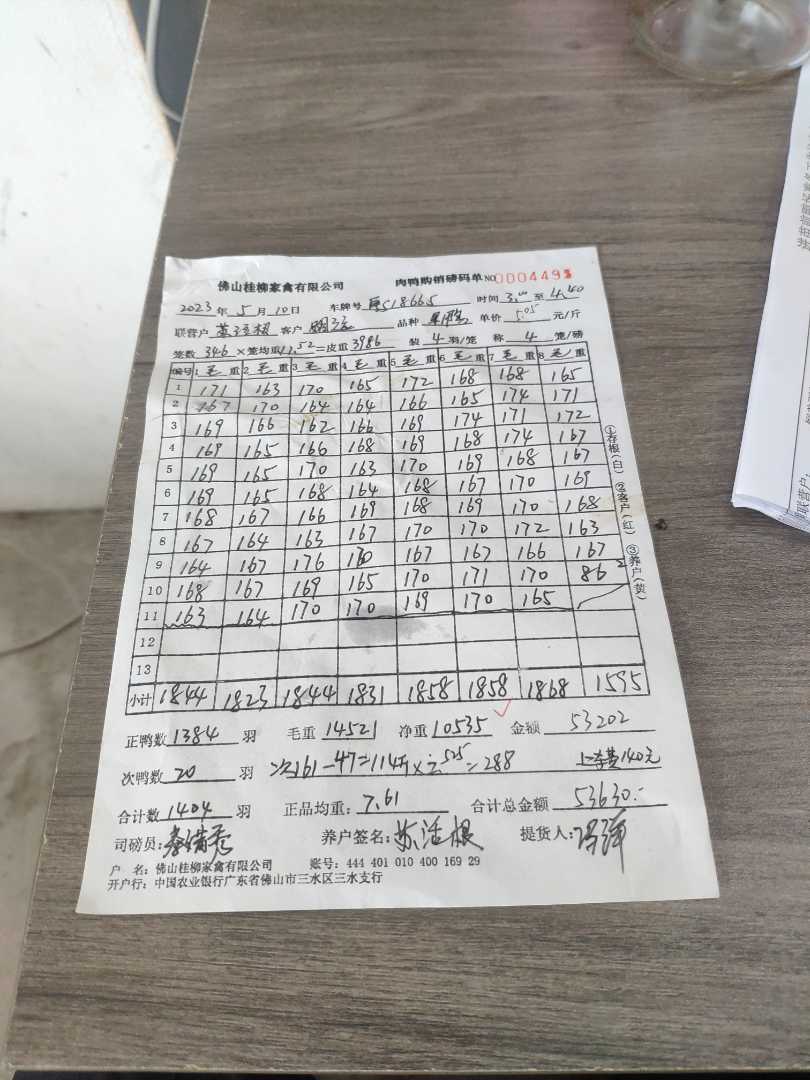 佛山桂柳家禽有限公司 肉鸭购销磅码单 NO 0004493
2023 年 5 月 10 日 车牌号 518665 时间 3.00 至 4.40
联营户 客户 品种 单价 5.05 元/斤
笼数 346 ×笼均重 11.52 =皮重 3986 装 4 羽/笼 称 4 笼/磅
编号 1 毛 重 2 毛 重 3 毛 重 4 毛 重 5 毛 重 6 毛 重 7 毛 重 8 毛 重
1 171 163 170 165 172 168 168 165
2 167 170 164 164 166 165 174 171
3 169 166 162 166 169 174 171 172
4 169 165 166 168 169 168 174 167
5 169 165 170 163 170 169 168 167
6 169 165 168 164 168 167 170 169
7 168 167 166 169 168 169 170 168
8 167 164 163 167 170 170 172 163
9 164 167 176 170 167 167 166 167
10 168 167 169 165 170 171 170 86 2
11 163 164 170 170 169 170 165
12
13
小计 1844 1823 1844 1831 1858 1858 1868 1595
正鸭数 1384 羽 毛重 14521 净重 10535 金额 53202
次鸭数 20 羽 次161-47=114斤× 2.525=288 上车费140元
合计数 1404 羽 正品均重: 7.61 合计总金额 53630.-
司磅员: 养户签名: 苏活根 提货人:
户 名: 佛山桂柳家禽有限公司 账号: 444 401 010 400 169 29
开户行: 中国农业银行广东省佛山市三水区三水支行
①存根(白) ②客户(红) ③养户(黄)
联营户: